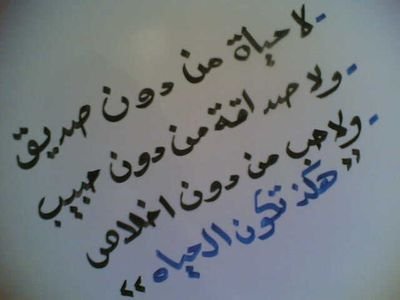 - لا حياة من دون صديق
- ولا صداقة من دون حبيب
- ولا حب من دون اخلاص
"هكذ تكون الحياه"